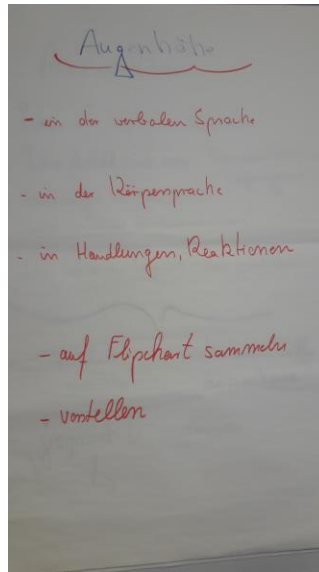 Augenhöhe
- in der verbalen Sprache
- in der Körpersprache
- in Handlungen, Reaktionen
- auf Flipchart sammeln
- vorstellen